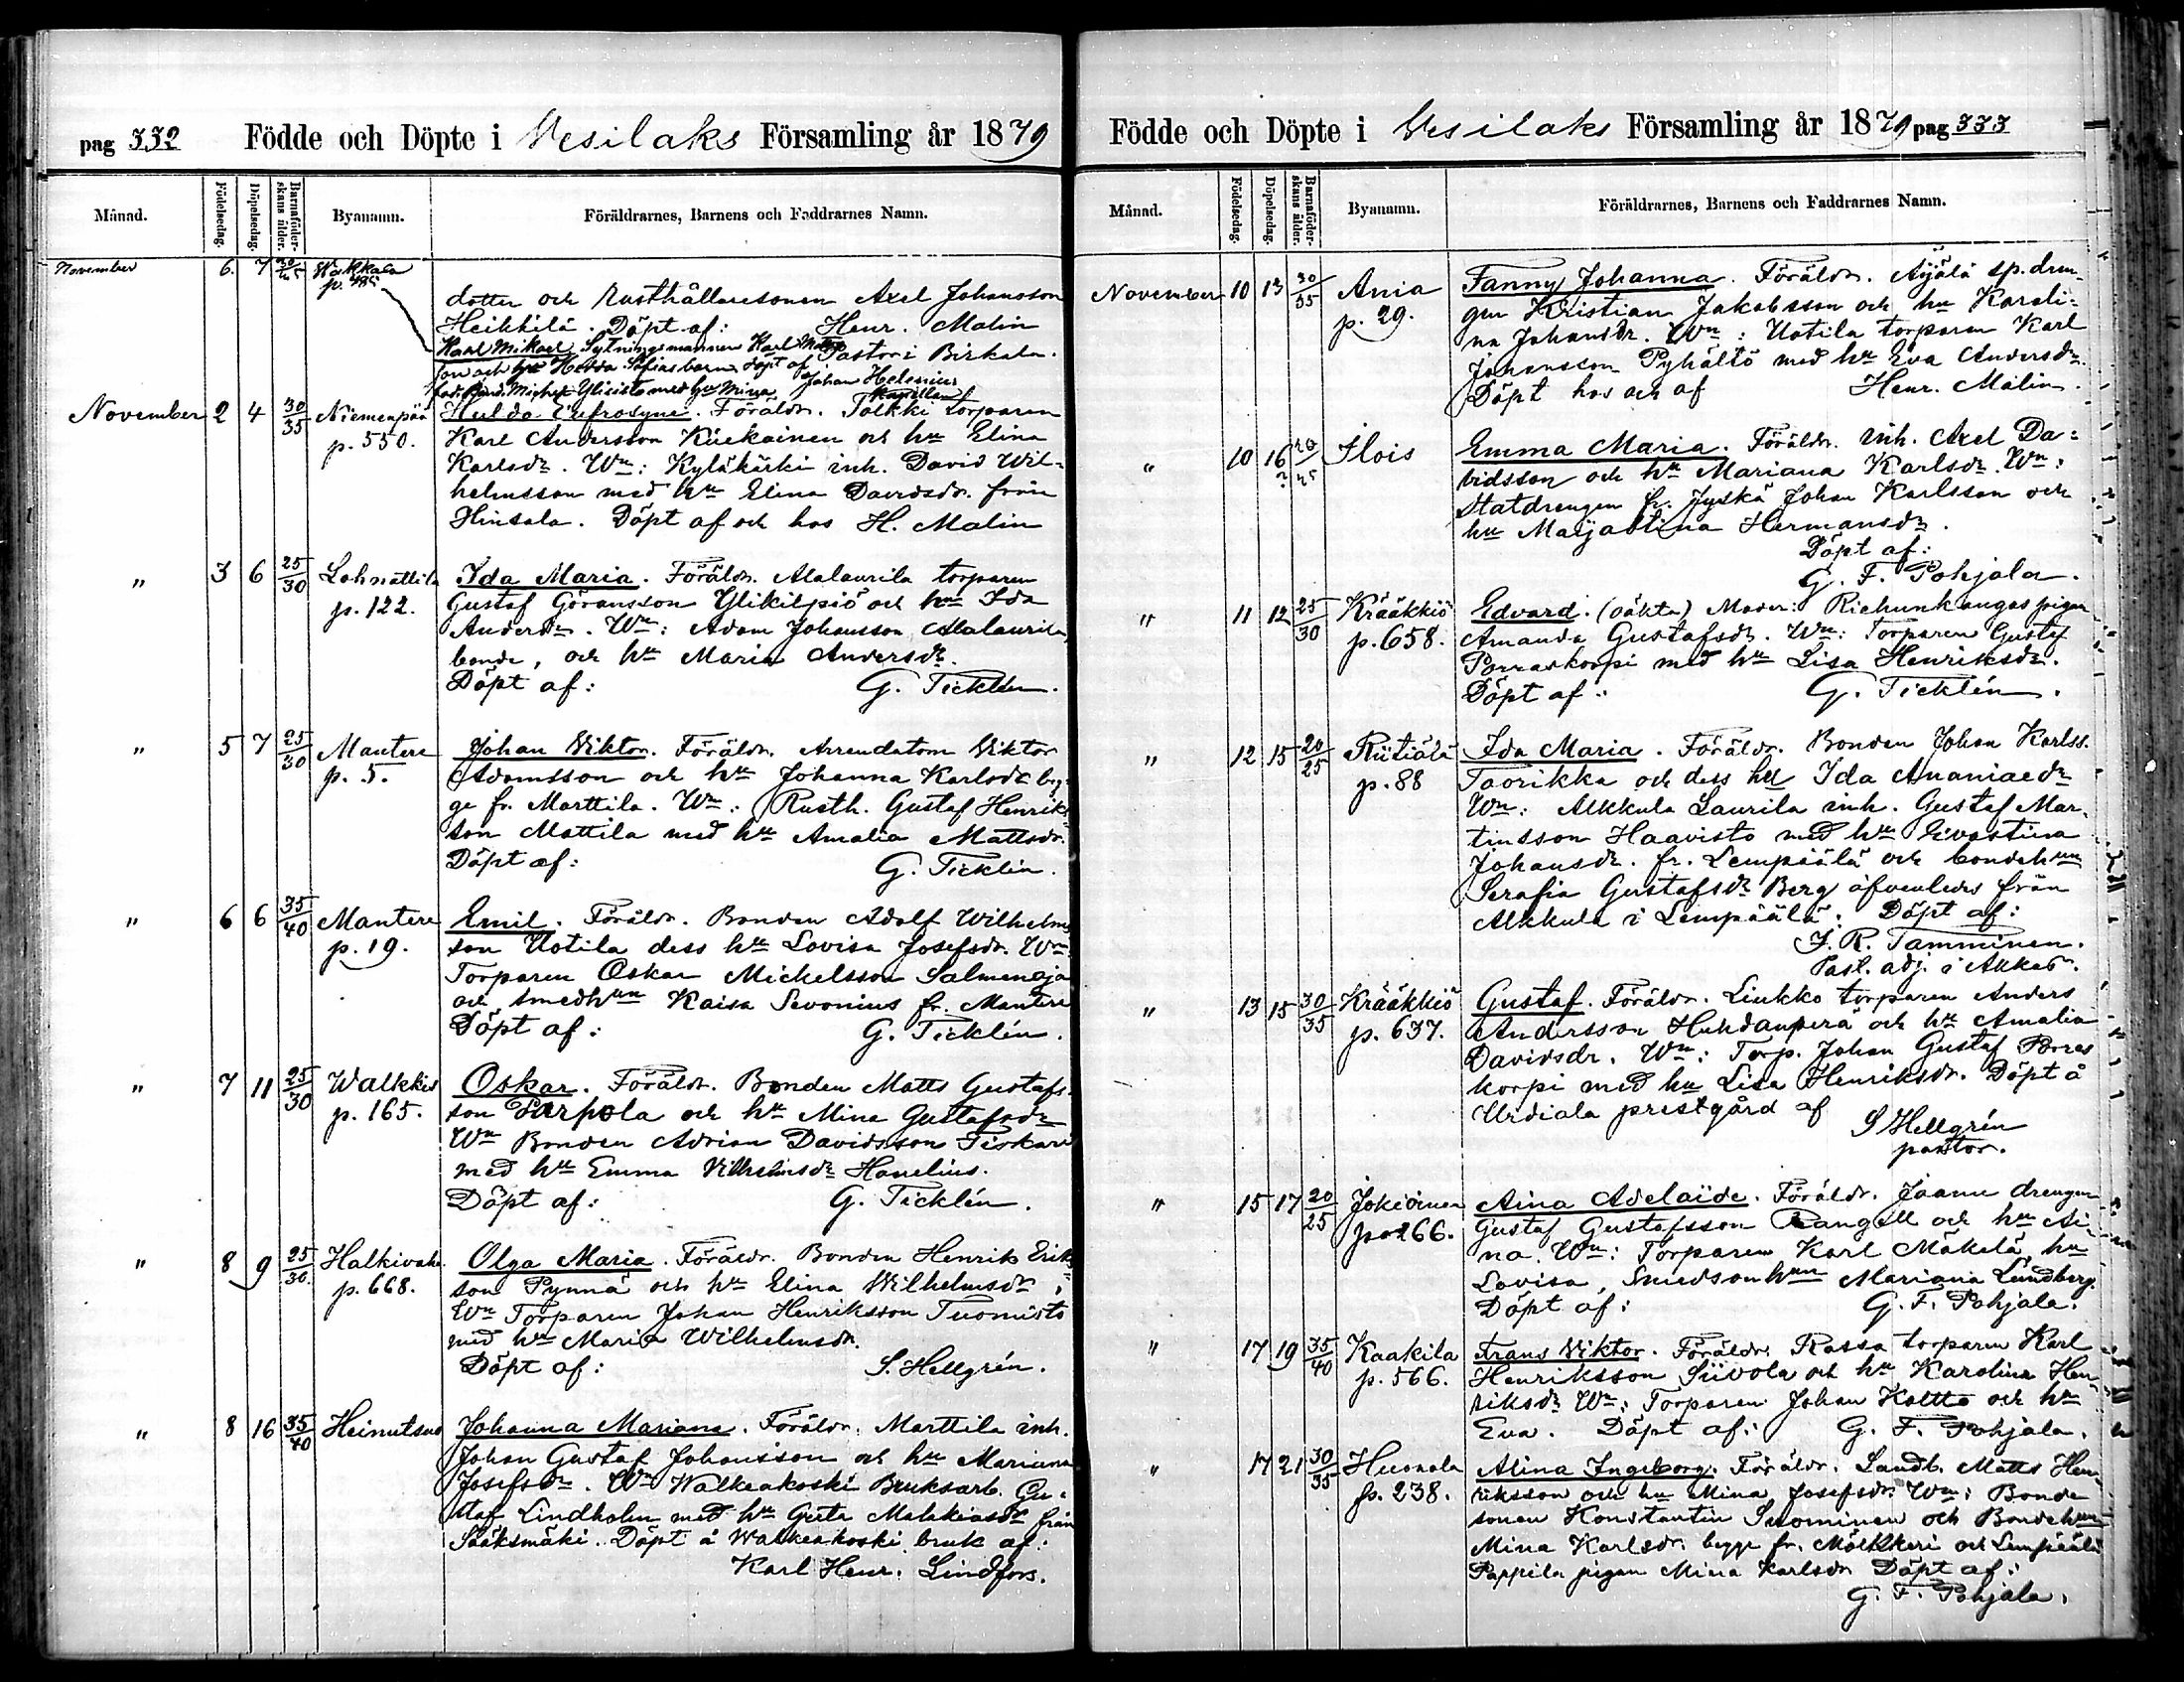 pag 332 Födde och Döpte i Vesilaks Församling år 1879
Månad. Födelsedag. Döpelsedag. Barnaföderskans ålder. Byanamn. Föräldrarnes, Barnens och Faddrarnes Namn.
November 6. 7 Wakkala
dotter och Rusthållaresonen Axel Johansson
Heikkilä. Döpt af: Henr. Malin
Pastor i Birkala.
Karl Mikael Sytningsmannen Karl
son och hu Hedda Sofias barn döpt af Johan Helenius
fad. Bond. Michel Ylisisto med hu Mina Kapellan
November 2 4 30/35 Niemenpää Hulda Eufrosyne. Föräldr. Tolkki torparen
p. 550. Karl Andersson Kiiekainen och hu Elina
Karlsdr. Wn: Kyläkirki inh. David Wil-
helmsson med hu Elina Davidsdr. från
Hinsala. Döpt af och hos H. Malin
" 3 6 25/30 Lahnattila Ida Maria. Föräldr. Alalaurila torparen
p. 122. Gustaf Göransson Ylikilpiö och hu Ida
Andersdr. Wn: Adam Johansson Alalaurila
bonde, och hu Maria Andersdr.
Döpt af: G. Ticklén.
" 5 7 25/30 Mantere Johan Viktor. Föräldr. Arrendatorn Viktor
p. 5. Adamsson och hu Johanna Karlsdr. byg-
ge fr. Marttila. Wn: Rusth. Gustaf Henriks-
son Mattila med hu Amalia Mattsdr.
Döpt af: G. Ticklén.
" 6 6 35/40 Mantere Emil. Föräldr. Bonden Adolf Wilhelms
p. 19. son Uotila dess hu Lovisa Josefsdr. Wn
Torparen Oskar Mickelsson Salmenoja
och smedhun Kaisa Sevonius fr. Mantere
Döpt af: G. Ticklén.
" 7 11 25/30 Walkkis Oskar. Föräldr. Bonden Matts Gustafs-
p. 165. son Tarpola och hu Mina Gustafsdr
Wn Bonden Adrian Davidsson Tiskari
med hu Emma Vilhelmsdr Hanelius.
Döpt af: G. Ticklén.
" 8 9 25/30. Halkivaha. Olga Maria. Föräldr. Bonden Henrik Eriks
p. 668. son Pynnä och hu Elina Wilhelmsdr.
Wn Torparen Johan Henriksson Tuomisto
med hu Maria Wilhelmsdr.
Döpt af: S. Hellgrén.
" 8 16 35/40 Heinutsuo Johanna Mariana. Föräldr. Marttila inh.
Johan Gustaf Johansson och hu Mariana
Josefsdr. Wn Walkeakoski Bruksarb. Gu-
staf Lindholm med hu Gusta Malkiasdr från
Sääksmäki. Döpt å Walkeakoski bruk af:
Karl Henr. Lindfors.
Födde och Döpte i Vesilaks Församling år 1879 pag 333
Månad. Födelsedag. Döpelsedag. Barnaföderskans ålder. Byanamn. Föräldrarnes, Barnens och Faddrarnes Namn.
November 10 13 30/35 Ania Fanny Johanna. Föräldr. Äijälä sp. drän-
p. 29. gen Kristian Jakobsson och hu Karoli-
na Johansdr. Wn: Uotila torparen Karl
Johansson Pyhältö med hu Eva Andersdr.
Döpt hos och af Henr. Malin.
" 10 16 Ilois Emma Maria. Föräldr. inh. Axel Da-
vidsson och hu Mariana Karlsdr. Wn:
Statdrengen fr. Jyskä Johan Karlsson och
hu Majastina Hermansdr.
Döpt af:
G. F. Pohjala.
" 11 12 25/30 Krääkkiö Edvard. (oäkta) Moder: Riehunkangas pigan
p. 658. Amanda Gustafsdr. Wn: Torparen Gustaf
Porraskorpi med hu Lisa Henriksdr.
Döpt af: G. Ticklén.
" 12 15 20/25 Riitiälä Ida Maria. Föräldr. Bonden Johan Karlss.
p. 88 Taorikka och dess hu Ida Ananiaedr
Wn: Alkkula Laurila inh. Gustaf Mar-
tinsson Haavisto med hu Evastina
Johansdr. fr. Lempäälä och bondehun
Serafia Gustafsdr Berg äfvenledes från
Alkkula i Lempäälä. Döpt af:
J. R. Tamminen.
Past. adj. i Akkas.
" 13 15 30/35 Krääkkiö Gustaf. Föräldr. Liukko torparen Anders
p. 637. Andersson Huhdanperä och hu Amalia
Davidsdr. Wn: Torp. Johan Gustaf Porras
korpi med hu Lisa Henriksdr. Döpt å
Urdiala prestgård af S Hellgrén
pastor.
" 15 17 20/25 Jokioinen Aina Adelaide. Föräldr. Jaanu drengen
p. 266. Gustaf Gustafsson Rangell och hu Ai-
na. Wn: Torparen Karl Mäkelä, hu
Lovisa, Smedsonhun Mariana Lundberg.
Döpt af: G. F. Pohjala.
" 17 19 35/40 Kaakila Frans Viktor. Föräldr. Rassa torparen Karl
p. 566. Henriksson Siivola och hu Karolina Hen-
riksdr Wn: Torparen Johan Koltto och hu
Eva. Döpt af: G. F. Pohjala.
" 17 21 30/35 Huonala Alina Ingeborg. Föräldr. Landb. Matts Hen-
p. 238. riksson och hu Mina Josefsdr. Wn: Bonde
sonen Konstantin Suominen och Bondehun
Mina Karlsdr. begge fr. Mölkkeri och Lempäälä
Pappila pigan Mina Karlsdr Döpt af:
G. F. Pohjala.